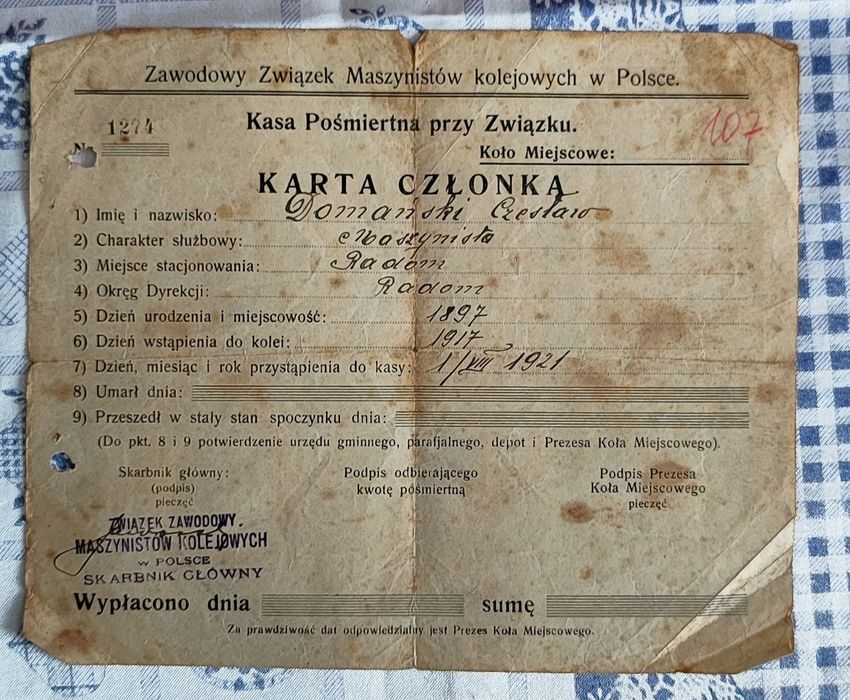 Zawodowy Związek Maszynistów kolejowych w Polsce.
Kasa Pośmiertna przy Związku.
107
Nr 1274
Koło Miejscowe:
KARTA CZŁONKA
1) Imię i nazwisko: Domański Czesław
2) Charakter służbowy: Maszynista
3) Miejsce stacjonowania: Radom
4) Okręg Dyrekcji: Radom
5) Dzień urodzenia i miejscowość: 1897
6) Dzień wstąpienia do kolei: 1917
7) Dzień, miesiąc i rok przystąpienia do kasy: 1/VIII 1921
8) Umarł dnia:
9) Przeszedł w stały stan spoczynku dnia:
(Do pkt. 8 i 9 potwierdzenie urzędu gminnego, parafjalnego, depot i Prezesa Koła Miejscowego).
Skarbnik główny:
(podpis)
pieczęć
Podpis odbierającego
kwotę pośmiertną
Podpis Prezesa
Koła Miejscowego
pieczęć
ZWIĄZEK ZAWODOWY
MASZYNISTÓW KOLEJOWYCH
w POLSCE
SKARBNIK GŁÓWNY
Wypłacono dnia sumę
Za prawdziwość dat odpowiedzialny jest Prezes Koła Miejscowego.